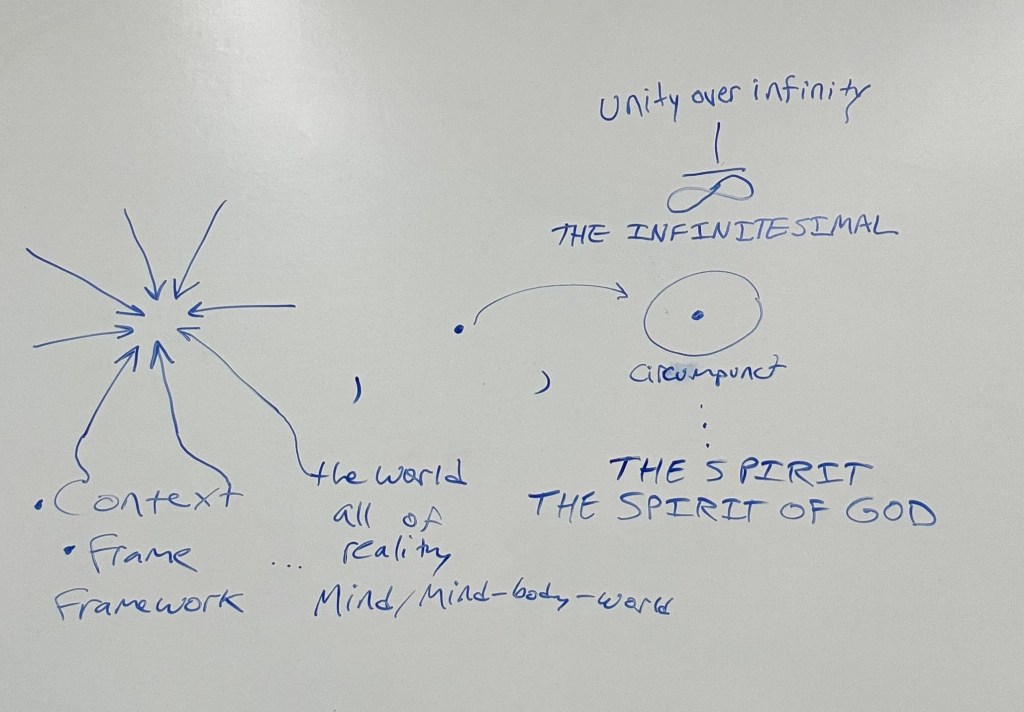 Unity over infinity
1
∞
THE INFINITESIMAL
Circumpunct
THE SPIRIT
THE SPIRIT OF GOD
• Context
• Frame
Framework
...
the world
all of
reality
Mind/Mind-body-world